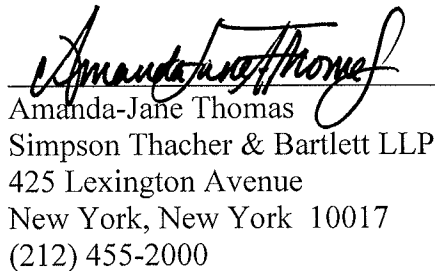 Amanda Jane Thomas
Amanda-Jane Thomas
Simpson Thacher & Bartlett LLP
425 Lexington Avenue
New York, New York  10017
(212) 455-2000